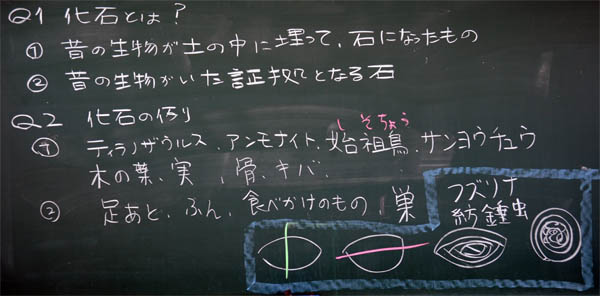 Q1 化石とは？
① 昔の生物が土の中に埋って、石になったもの
② 昔の生物がいた証拠となる石
Q2 化石の例り
しそちょう
① ティラノザウルス、アンモナイト、始祖鳥、サンヨウチュウ
木の葉、実、骨、キバ、
② 足あと、ふん、食べかけのもの、巣
フズリナ
紡錘虫